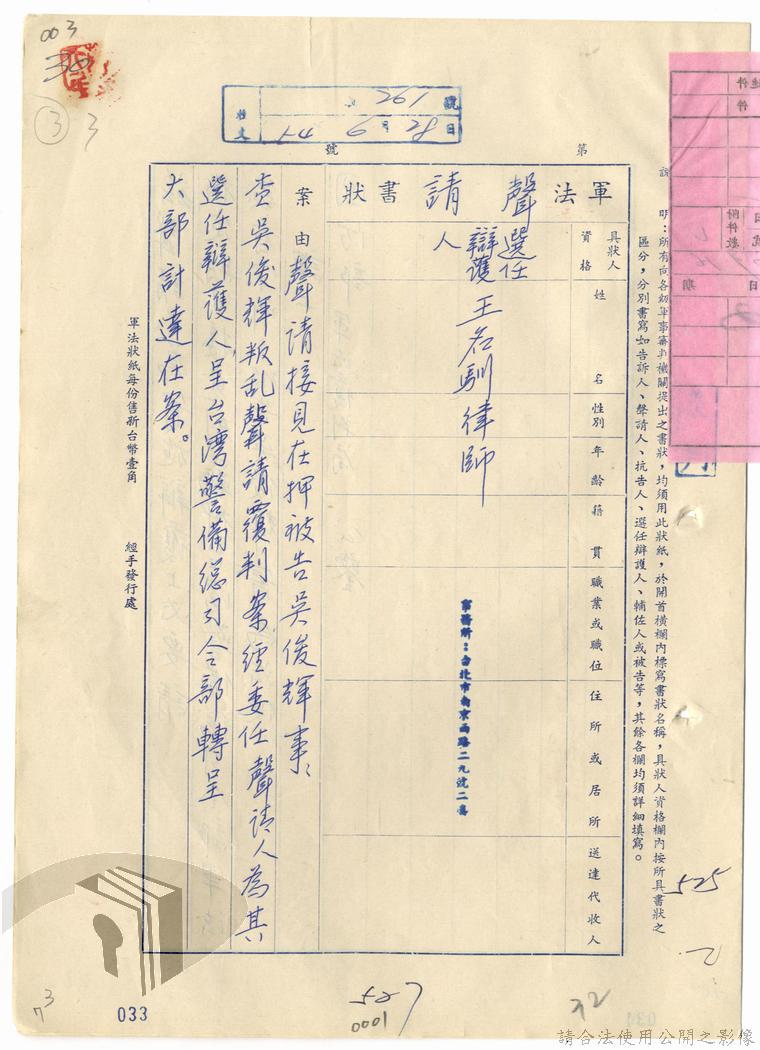 003
30
3
3
261 號
54 6 28 日
收文
第 號
說明:所有向各級軍事審判機關提出之書狀,均須用此狀紙,於開首橫欄內標寫書狀名稱,具狀人資格欄內按所具書狀之
區分,分別書寫如告訴人、聲請人、抗告人、選任辯護人、輔佐人或被告等,其餘各欄均須詳細填寫。
軍法聲請書狀
具狀人資格
姓名
性別
年齡
籍貫
職業或職位
住所或居所
送達代收人
選任辯護人
王名馴律師
事務所:台北市南京西路二九號二樓
案由 聲請接見在押被告吳俊輝事:
查吳俊輝叛乱聲請覆判案經委任聲請人為其
選任辯護人呈台湾警備総司令部轉呈
大部計達在案。
軍法狀紙每份售新台幣壹角
經手發行處
附件數
日期
525
527
0001
033
請合法使用公開之影像